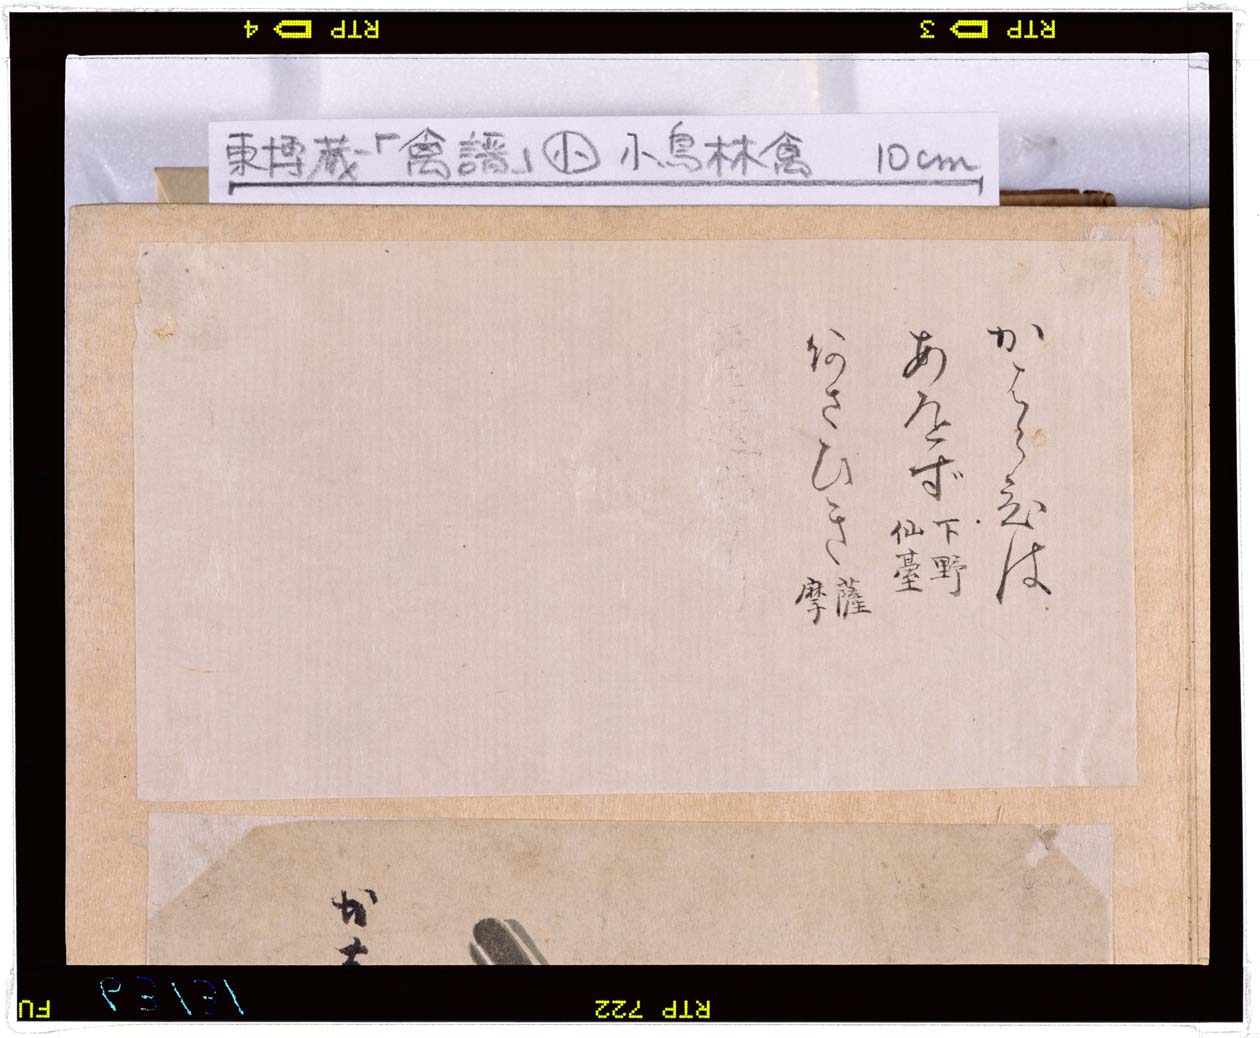 RTP 4
RTP 3
東博蔵「禽譜」㊙小鳥林禽 10cm
かはらひは
あをず 下野 仙臺
あさひき 薩摩
か
FU
63131
RTP 722